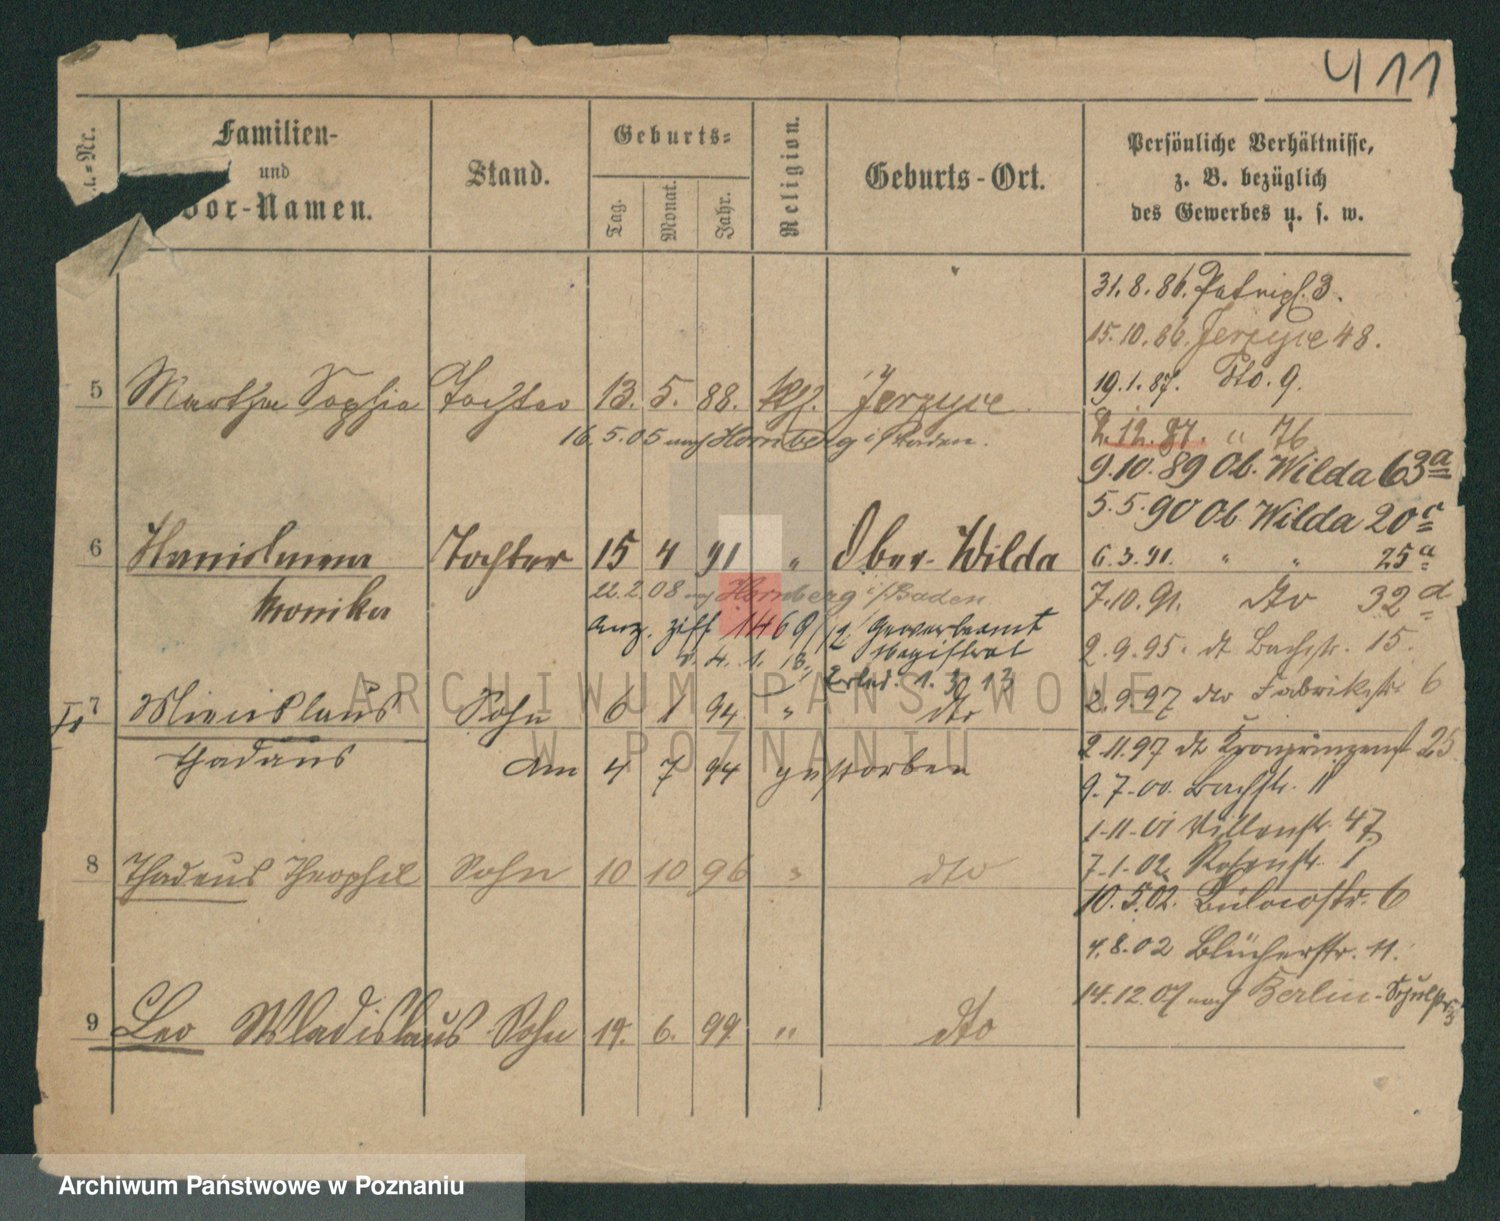 411
Familien- und Vor-Namen.
Stand.
Geburts-
Tag.
Monat.
Jahr.
Religion.
Geburts-Ort.
Persönliche Verhältnisse,
z. B. bezüglich
des Gewerbes u. s. w.
31.8.86. 3.
15.10.86. Jerzyce 48.
19.1.87. dto. 9.
5 Martha Sophia Tochter 13. 5. 88. kth. Jerzyce
2.12.87. " 76
16.5.05 nach Hornberg i/Baden.
9.10.89 Ob. Wilda 63a
5.5.90 Ob. Wilda 20c
6 Stanislawa Tochter 15 4 91 " Ober-Wilda
6.3.91. " " 25a
Monika
22.2.08 nach Hornberg i/Baden
7.10.91. dto 32d
Anz. Ziff 1469/12 Gewerbeamt
Magistrat
v. 4.1.13,
2.9.95. dt Bachstr. 15.
Erled. 1.30 13
2.9.97 dto Fabrikstr 6
7 Miecislaus Sohn 6 1 94 " dto
Thadäus
2.11.97 dt Kronprinzenst 25
am 4 7 94 gestorben
9.7.00. Bachstr. 11
1.11.01 Villenstr. 47
7.1.02. Rosenstr. 1
8 Thadeus Theophil Sohn 10 10 96 " dto
10.5.02. Bülowstr. 6
4.8.02 Blücherstr. 11.
14.12.07 nach Berlin-
9 Leo Wladislaus Sohn 19. 6. 99. " dto
ARCHIWUM PAŃSTWOWE
W POZNANIU
Archiwum Państwowe w Poznaniu